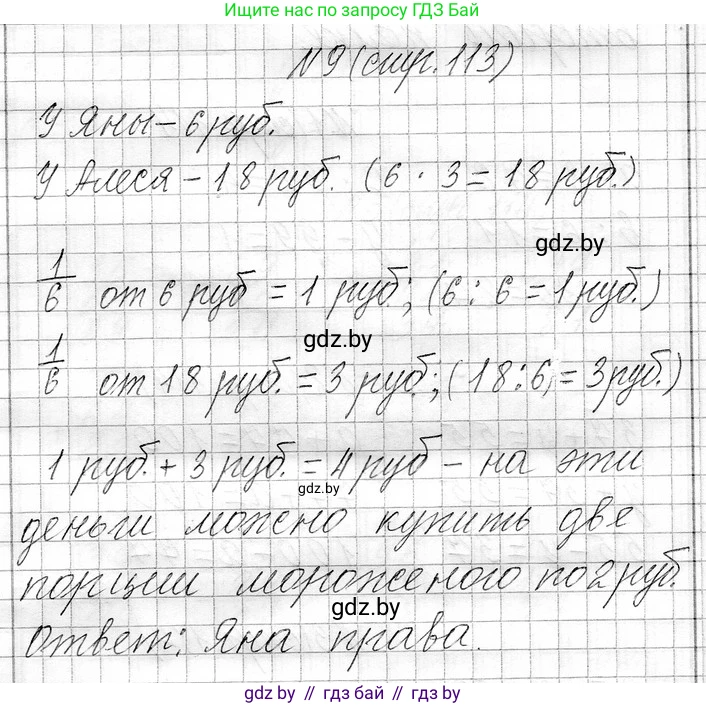 Ищите нас по запросу ГДЗ Бай
N9 (стр. 113)
У Яны – 6 руб.
У Алеся – 18 руб. (6 · 3 = 18 руб.)
gdz.by
1/6 от 6 руб = 1 руб.; (6 : 6 = 1 руб.)
gdz.by
1/6 от 18 руб. = 3 руб.; (18 : 6 = 3 руб.)
1 руб. + 3 руб. = 4 руб – на эти
gdz.by
деньги можно купить две
порции мороженого по 2 руб.
gdz.by
Ответ: Яна права.
gdz.by // гдз бай // gdz.by